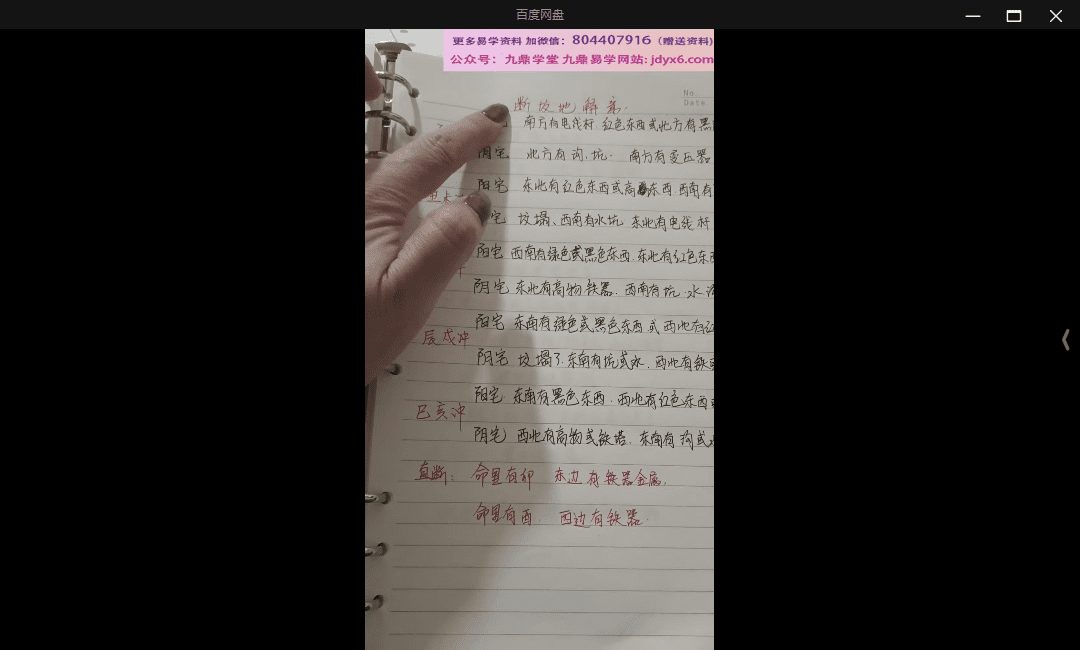 百度网盘
更多易学资料 加微信：804407916（赠送资料)
公众号：九鼎学堂 九鼎易学网站: jdyx6.com
No.
Date
断坟地解京.
南方有电线杆 红色东西或北方有黑
阴宅 北方有沟.坑. 南方有变压器
阳宅 东北有红色东西或高 东西 西南有
宅 坟塌、西南有水坑 东北有电线杆
阳宅 西南有绿色或黑色东西.东北有红色东西
阴宅 东北有高物铁器.西南有坑.水
阳宅 东南有绿色或黑色东西或西北有红
辰戌冲
阴宅 坟塌了.东南有坑或水.西北有铁
阳宅 东南有黑色东西.西北有红色东西
巳亥冲
阴宅 西北有高物或铁塔.东南有沟或水
直断：命里有卯 东边有铁器金属.
命里有酉. 西边有铁器.